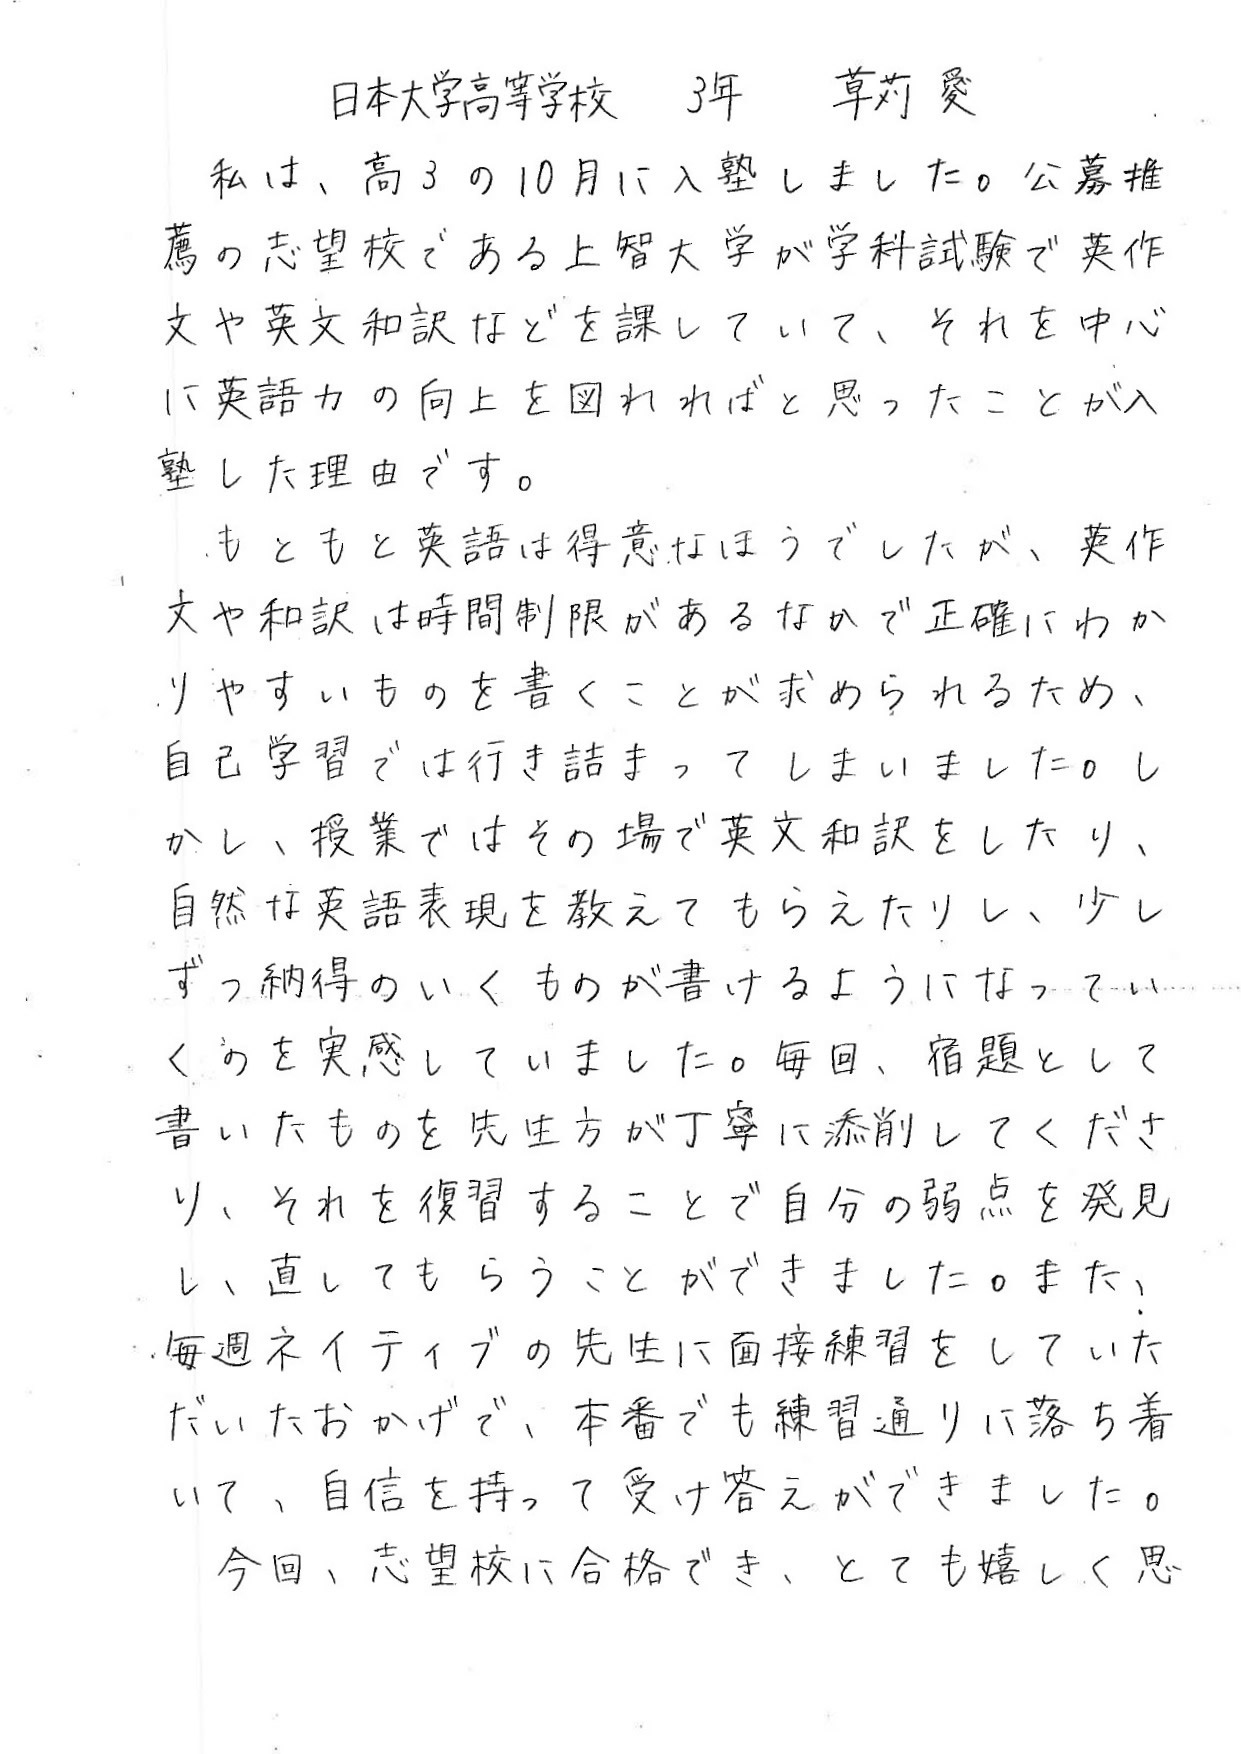 日本大学高等学校 3年 草苅 愛
私は、高3の10月に入塾しました。公募推
薦の志望校である上智大学が学科試験で英作
文や英文和訳などを課していて、それを中心
に英語力の向上を図れればと思ったことが入
塾した理由です。
もともと英語は得意なほうでしたが、英作
文や和訳は時間制限があるなかで正確にわか
りやすいものを書くことが求められるため、
自己学習では行き詰まってしまいました。し
かし、授業ではその場で英文和訳をしたり、
自然な英語表現を教えてもらえたりし、少し
ずつ納得のいくものが書けるようになってい
くのを実感していました。毎回、宿題として
書いたものを先生方が丁寧に添削してくださ
り、それを復習することで自分の弱点を発見
し、直してもらうことができました。また、
毎週ネイティブの先生に面接練習をしていた
だいたおかげで、本番でも練習通りに落ち着
いて、自信を持って受け答えができました。
今回、志望校に合格でき、とても嬉しく思